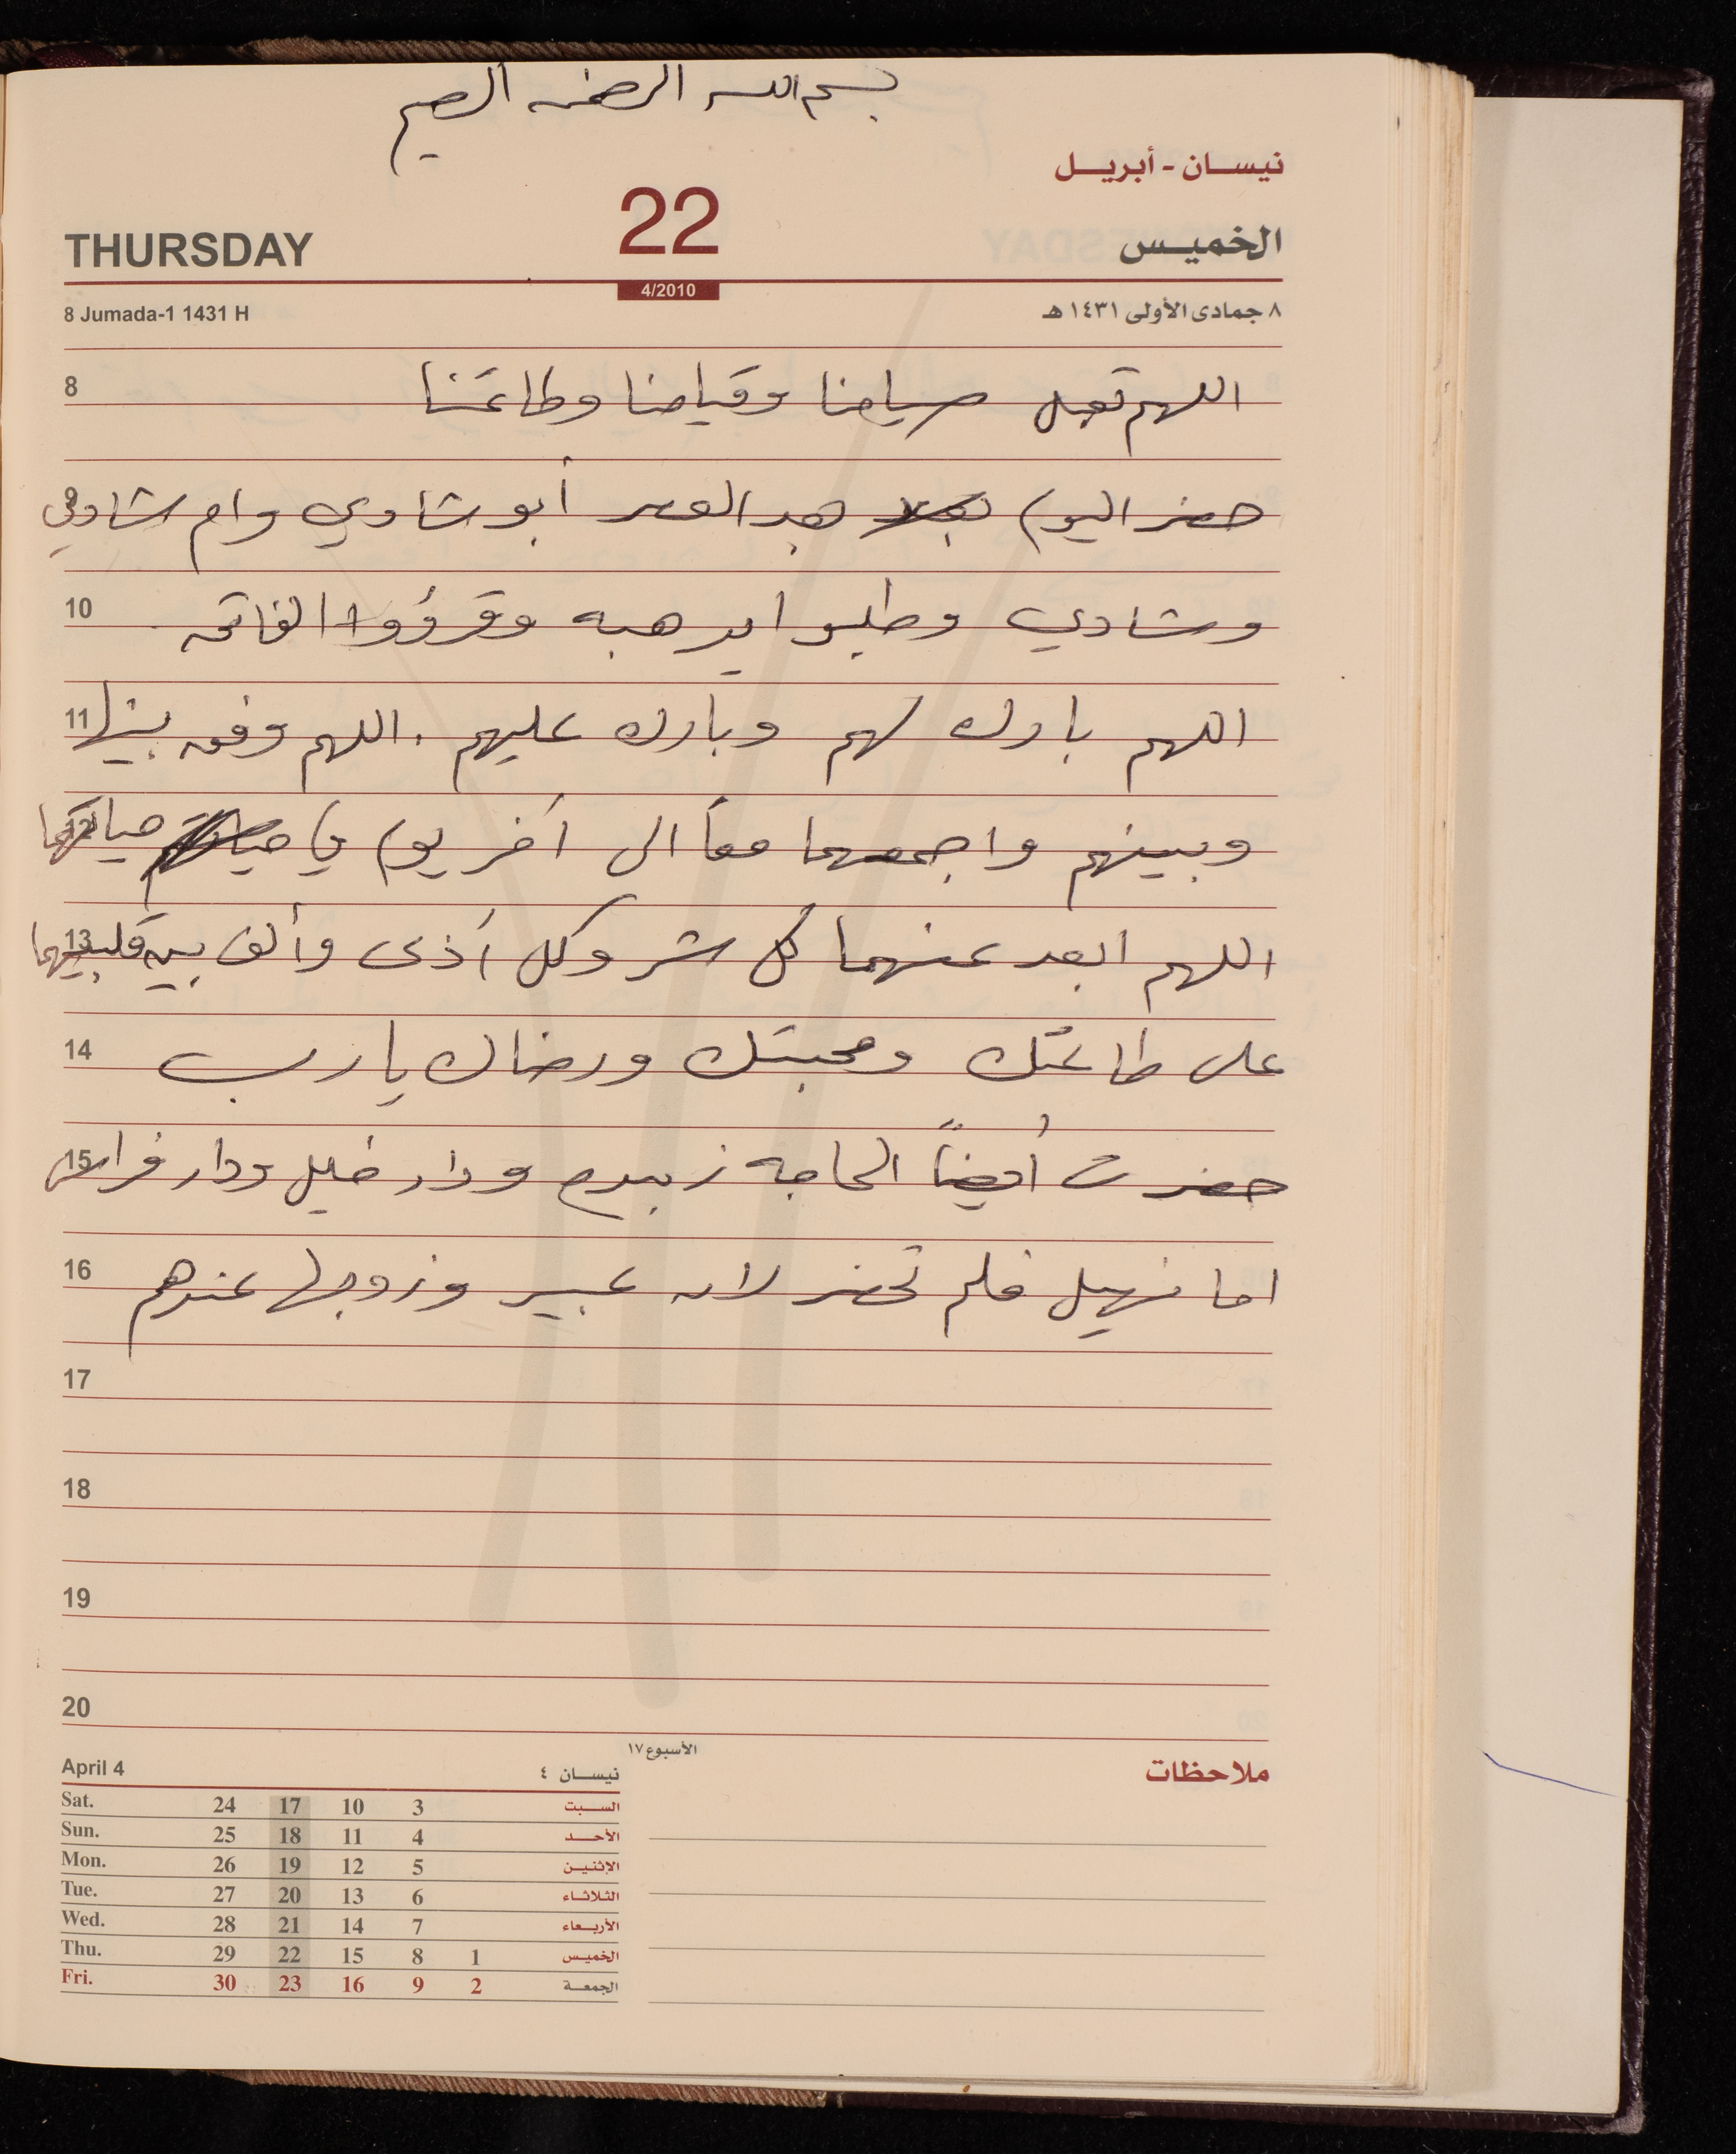 بسم الله الرحمن الرحيم
نيسان - أبريل
THURSDAY 22 الخميس
4/2010
8 Jumada-1 1431 H ٨ جمادى الأولى ١٤٣١ هـ
8 اللهم تقبل صيامنا وقيامنا وطاعتنا
9 حضر اليوم بعد العصر أبو شادي وام شادي
10 وشادي وطلبوا يد هبه وقرؤوا الفاتحه
11 اللهم بارك لهم وبارك عليهم . اللهم وفق بينها
12 وبينهم واجمعهما معاً الى آخر يوم في حياتهما
13 اللهم ابعد عنهما كل شر وكل أذى وألف بين قلبيهما
14 على طاعتك ومحبتك ورضاك يا رب
15 حضرت أيضاً الحاجه زبيده ودار خليل ودار فراس
16 اما نهيل فلم تحضر لان عبير وزوجها عندهم
17
18
19
20
الأسبوع ١٧
ملاحظات
April 4 نيسان ٤
Sat. 24 17 10 3 السبت
Sun. 25 18 11 4 الأحد
Mon. 26 19 12 5 الإثنين
Tue. 27 20 13 6 الثلاثاء
Wed. 28 21 14 7 الأربعاء
Thu. 29 22 15 8 1 الخميس
Fri. 30 23 16 9 2 الجمعة